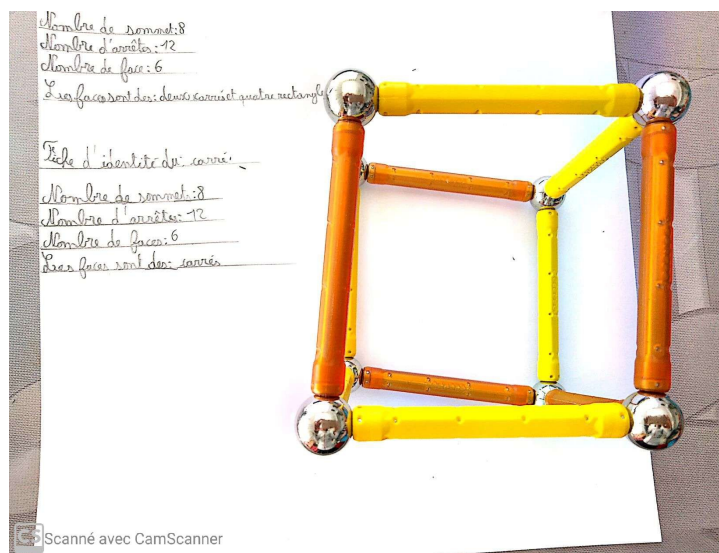 Nombre de sommet:8
Nombre d'arrêtes:12
Nombre de face:6
Les faces sont des: deux carrés et quatre rectangle
Fiche d'identité du: carré.
Nombre de sommet:8
Nombre d'arrêtes:12
Nombre de faces:6
Les faces sont des: carrés
CS Scanné avec CamScanner